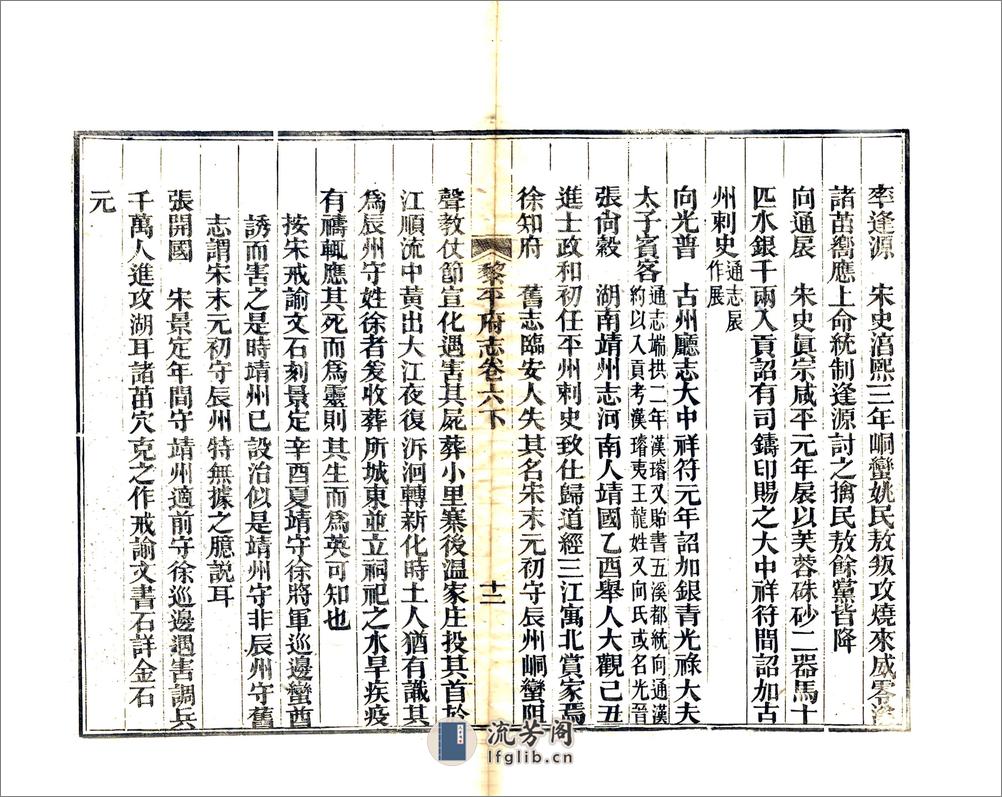 李逢源　宋史淳熙三年峒蠻姚民敖叛攻燒來威零溪
諸苗嚮應上命統制逢源討之擒民敖餘黨皆降
向通展　宋史眞宗咸平元年展以芙蓉硃砂二器馬十
匹水銀千兩入貢詔有司鑄印賜之大中祥符間詔加古
州刺史通志展作展
向光普　古州廳志大中祥符元年詔加銀青光祿大夫
太子賓客通志端拱二年漢璿又貽書五溪都統向通漢約以入貢考漢璿夷王龍姓又向氏或名光晉
張尙穀　湖南靖州志河南人靖國乙酉舉人大觀己丑
進士政和初任平州刺史致仕歸道經三江寓北賞家焉
徐知府　舊志臨安人失其名宋末元初守辰州峒蠻阻
黎平府志卷六下
十二
聲教仗節宣化遇害其屍葬小里寨後溫家庄投其首於
江順流中黃出大江夜復泝洄轉新化時土人猶有識其
爲辰州守姓徐者爰收葬所城東並立祠祀之水旱疾疫
有禱輒應其死而爲靈則其生而爲英可知也
按宋戒諭文石刻景定辛酉夏靖守徐將軍巡邊蠻酋
誘而害之是時靖州已設治似是靖州守非辰州守舊
志謂宋末元初守辰州特無據之臆說耳
張開國　宋景定年間守靖州適前守徐巡邊遇害調兵
千萬人進攻湖耳諸苗穴克之作戒諭文書石詳金石
元
流芳阁
lfglib.cn